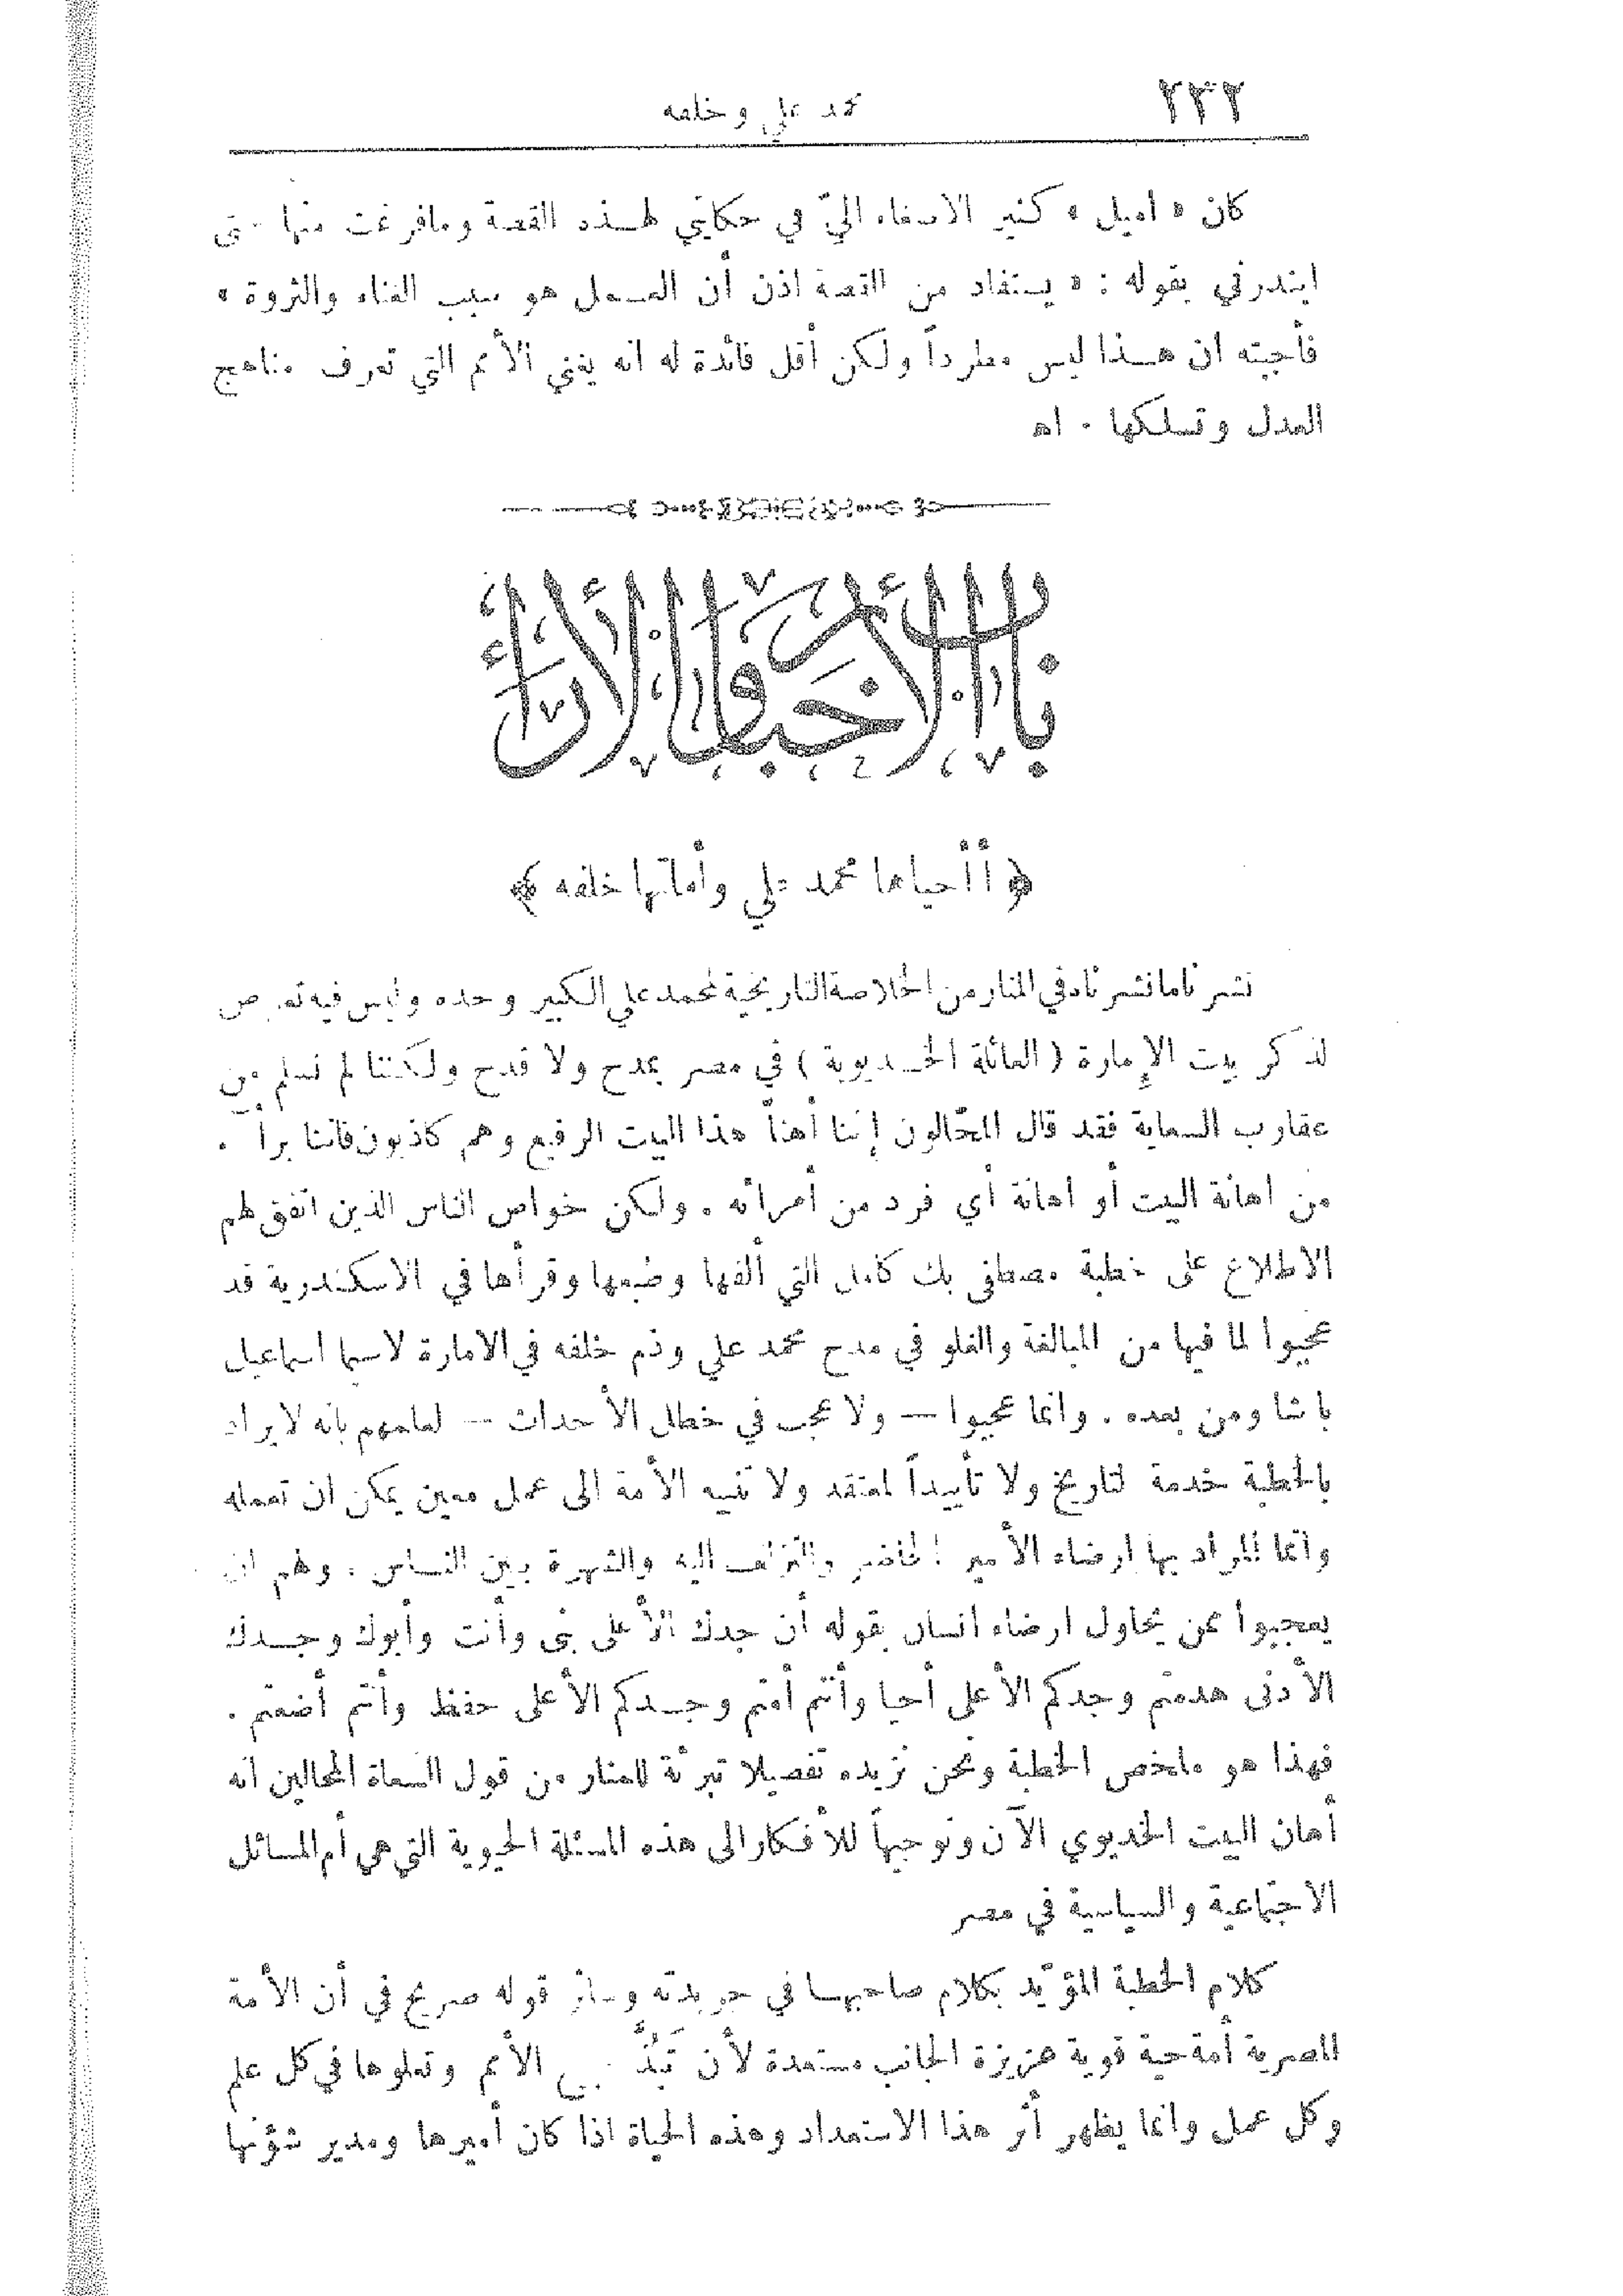 ٢٣٢
محمد علي وخلفه
كان « اميل » كثير الاصغاء اليّ في حكايتي لهـذه القصة وما فرغت منها حتى
ابتدرني بقوله : « يستفاد من القصة اذن أن العـمل هو سبب الغناء والثروة »
فأجبته ان هـذا ليس مطرداً ولكن أقل فائدة له انه يغني الأمم التي تعرف مناهج
العدل وتسلكها . اه
باب الأخبار والآراء
﴿ أأحياها محمد علي وأماتها خلفه ﴾
نشرنا ما نشرناه في المنار من الخلاصة التاريخية لمحمد علي الكبير وحده وليس فيه تعرض
لذكر بيت الإمارة ( العائلة الخـديوية ) في مصر بمدح ولا قدح ولكننا لم نسلم من
عقارب السعاية فقد قال المحّالون إننا أهنّا هذا البيت الرفيع وهم كاذبون فاننا براء .
من اهانة البيت أو اهانة أي فرد من أمرائه . ولكن خواص الناس الذين اتفق لهم
الاطلاع على خطبة مصطفى بك كامل التي ألفها وطبعها وقرأها في الاسكندرية قد
عجبوا لما فيها من المبالغة والغلو في مدح محمد علي وذم خلفه في الامارة لاسيما اسماعيل
باشا ومن بعده . وانما عجبوا — ولا عجب في خطل الأحداث — لعلمهم بانه لا يراد
بالخطبة خدمة لتاريخ ولا تأييداً لمعتقد ولا تنبيه الأمة الى عمل معين يمكن ان تعمله
وانما المراد بها ارضاء الأمير الحاضر والتزلف اليه والشهرة بين النـاس . ولهم ان
يعجبوا ممن يحاول ارضاء انسان بقوله أن جدك الأعلى بنى وأنت وأبوك وجـدك
الأدنى هدمتم وجدكم الأعلى أحيا وأنتم أمتم وجـدكم الأعلى حفظ وأنتم أضعتم .
فهذا هو ملخص الخطبة ونحن نزيده تفصيلا تبرئة للمنار من قول السعاة المحالين انه
أهان البيت الخديوي الآن وتوجيهاً للأفكار الى هذه المسئلة الحيوية التي هي أم المسائل
الاجتماعية والسياسية في مصر
كلام الخطبة المؤيّد بكلام صاحبهـا في جريدته وسائر قوله صريح في أن الأمة
المصرية أمة حية قوية عزيزة الجانب مستعدة لأن تَبُذَّ الأمم وتعلوها في كل علم
وكل عمل وانما يظهر أثر هذا الاستعداد وهذه الحياة اذا كان أميرها ومدير شؤنها